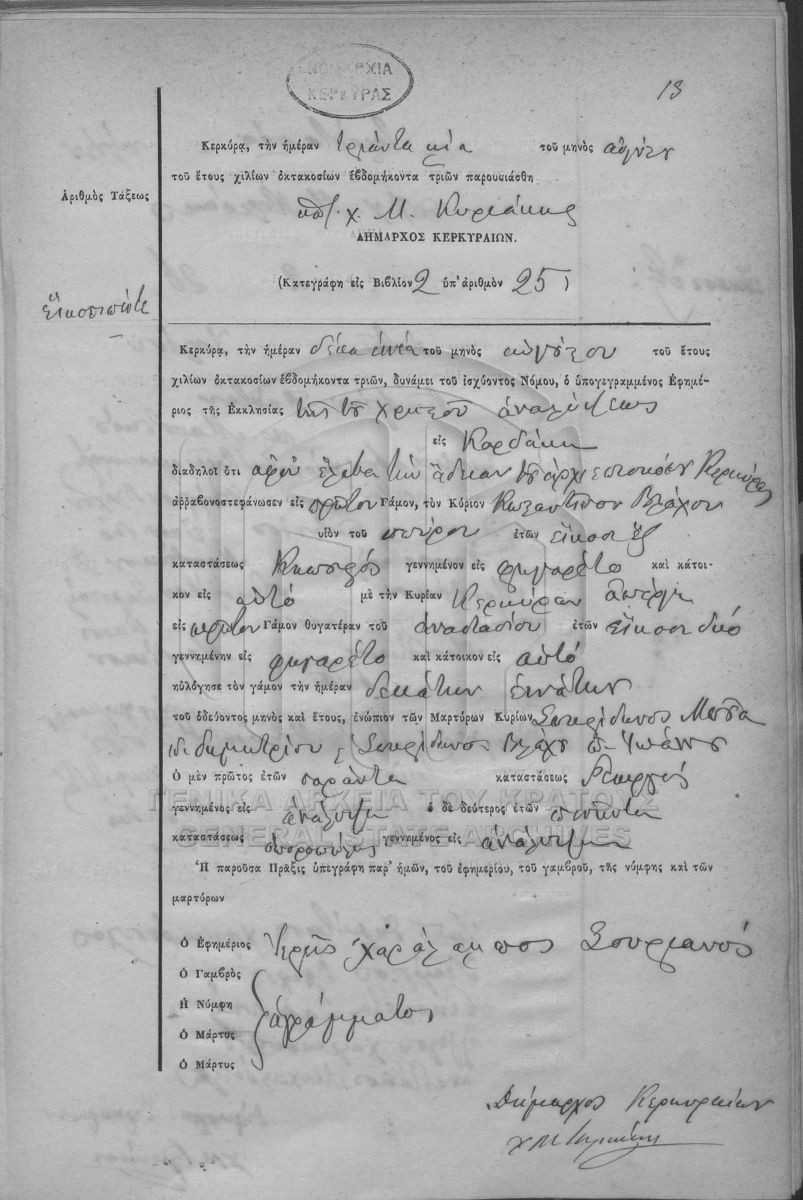 ΝΟΜΑΡΧΙΑ
ΚΕΡΚΥΡΑΣ
13
Κερκύρᾳ, τὴν ἡμέραν τριάντα μία τοῦ μηνὸς
τοῦ ἔτους χιλίων ὀκτακοσίων ἑβδομήκοντα τριῶν παρουσιάσθη
Ἀριθμὸς Τάξεως
χ. Μ. Κυριάκης
ΔΗΜΑΡΧΟΣ ΚΕΡΚΥΡΑΙΩΝ.
(Κατεγράφη εἰς Βιβλίον 2 ὑπ' ἀριθμὸν 25)
εἴκοσι πέντε
Κερκύρᾳ, τὴν ἡμέραν δέκα ἐννέα τοῦ μηνὸς αὐγούστου τοῦ ἔτους
χιλίων ὀκτακοσίων ἑβδομήκοντα τριῶν, δυνάμει τοῦ ἰσχύοντος Νόμου, ὁ ὑπογεγραμμένος Ἐφημέ-
ριος τῆς Ἐκκλησίας ἀναλήψεως
εἰς Καρδάκι
διαδηλοῖ ὅτι ἀφοῦ ἔλαβα τὴν ἄδειαν
ἀρραβονοστεφάνωσεν εἰς πρῶτον Γάμον, τὸν Κύριον Κωσταντῖνον Βλάχον
υἱὸν τοῦ σπύρου ἐτῶν εἴκοσι ἕξ
καταστάσεως Κηπουρός γεννημένον εἰς φιγαρέτο καὶ κάτοι-
κον εἰς αὐτό μὲ τὴν Κυρίαν Κερκύραν
εἰς πρῶτον Γάμον θυγατέραν τοῦ ἀναστασίου ἐτῶν εἴκοσι δύο
γεννημένην εἰς φιγαρέτο καὶ κάτοικον εἰς αὐτό
ηὐλόγησε τὸν γάμον τὴν ἡμέραν δεκάτην ἐνάτην
τοῦ ὁδεύοντος μηνὸς καὶ ἔτους, ἐνώπιον τῶν Μαρτύρων Κυρίων Σπυρίδωνος
δημητρίου Σπυρίδωνος Βλάχου
Ὁ μὲν πρῶτος ἐτῶν σαράντα καταστάσεως Γεωργός
γεννημένος εἰς ἀνάληψι ὁ δὲ δεύτερος ἐτῶν πενῆντα
καταστάσεως ὀποροπώλης γεννημένος εἰς ἀνάληψι
ΓΕΝΙΚΑ ΑΡΧΕΙΑ ΤΟΥ ΚΡΑΤΟΥΣ
GENERAL STATE ARCHIVES
Ἡ παροῦσα Πρᾶξις ὑπεγράφη παρ' ἡμῶν, τοῦ ἐφημερίου, τοῦ γαμβροῦ, τῆς νύμφης καὶ τῶν
μαρτύρων
ὁ Ἐφημέριος Ἱερεὺς χαράλαμπος Σουριανός
ὁ Γαμβρὸς
Ἡ Νύμφη
ἀγράμματος
ὁ Μάρτυς
ὁ Μάρτυς
Δήμαρχος Κερκυραίων